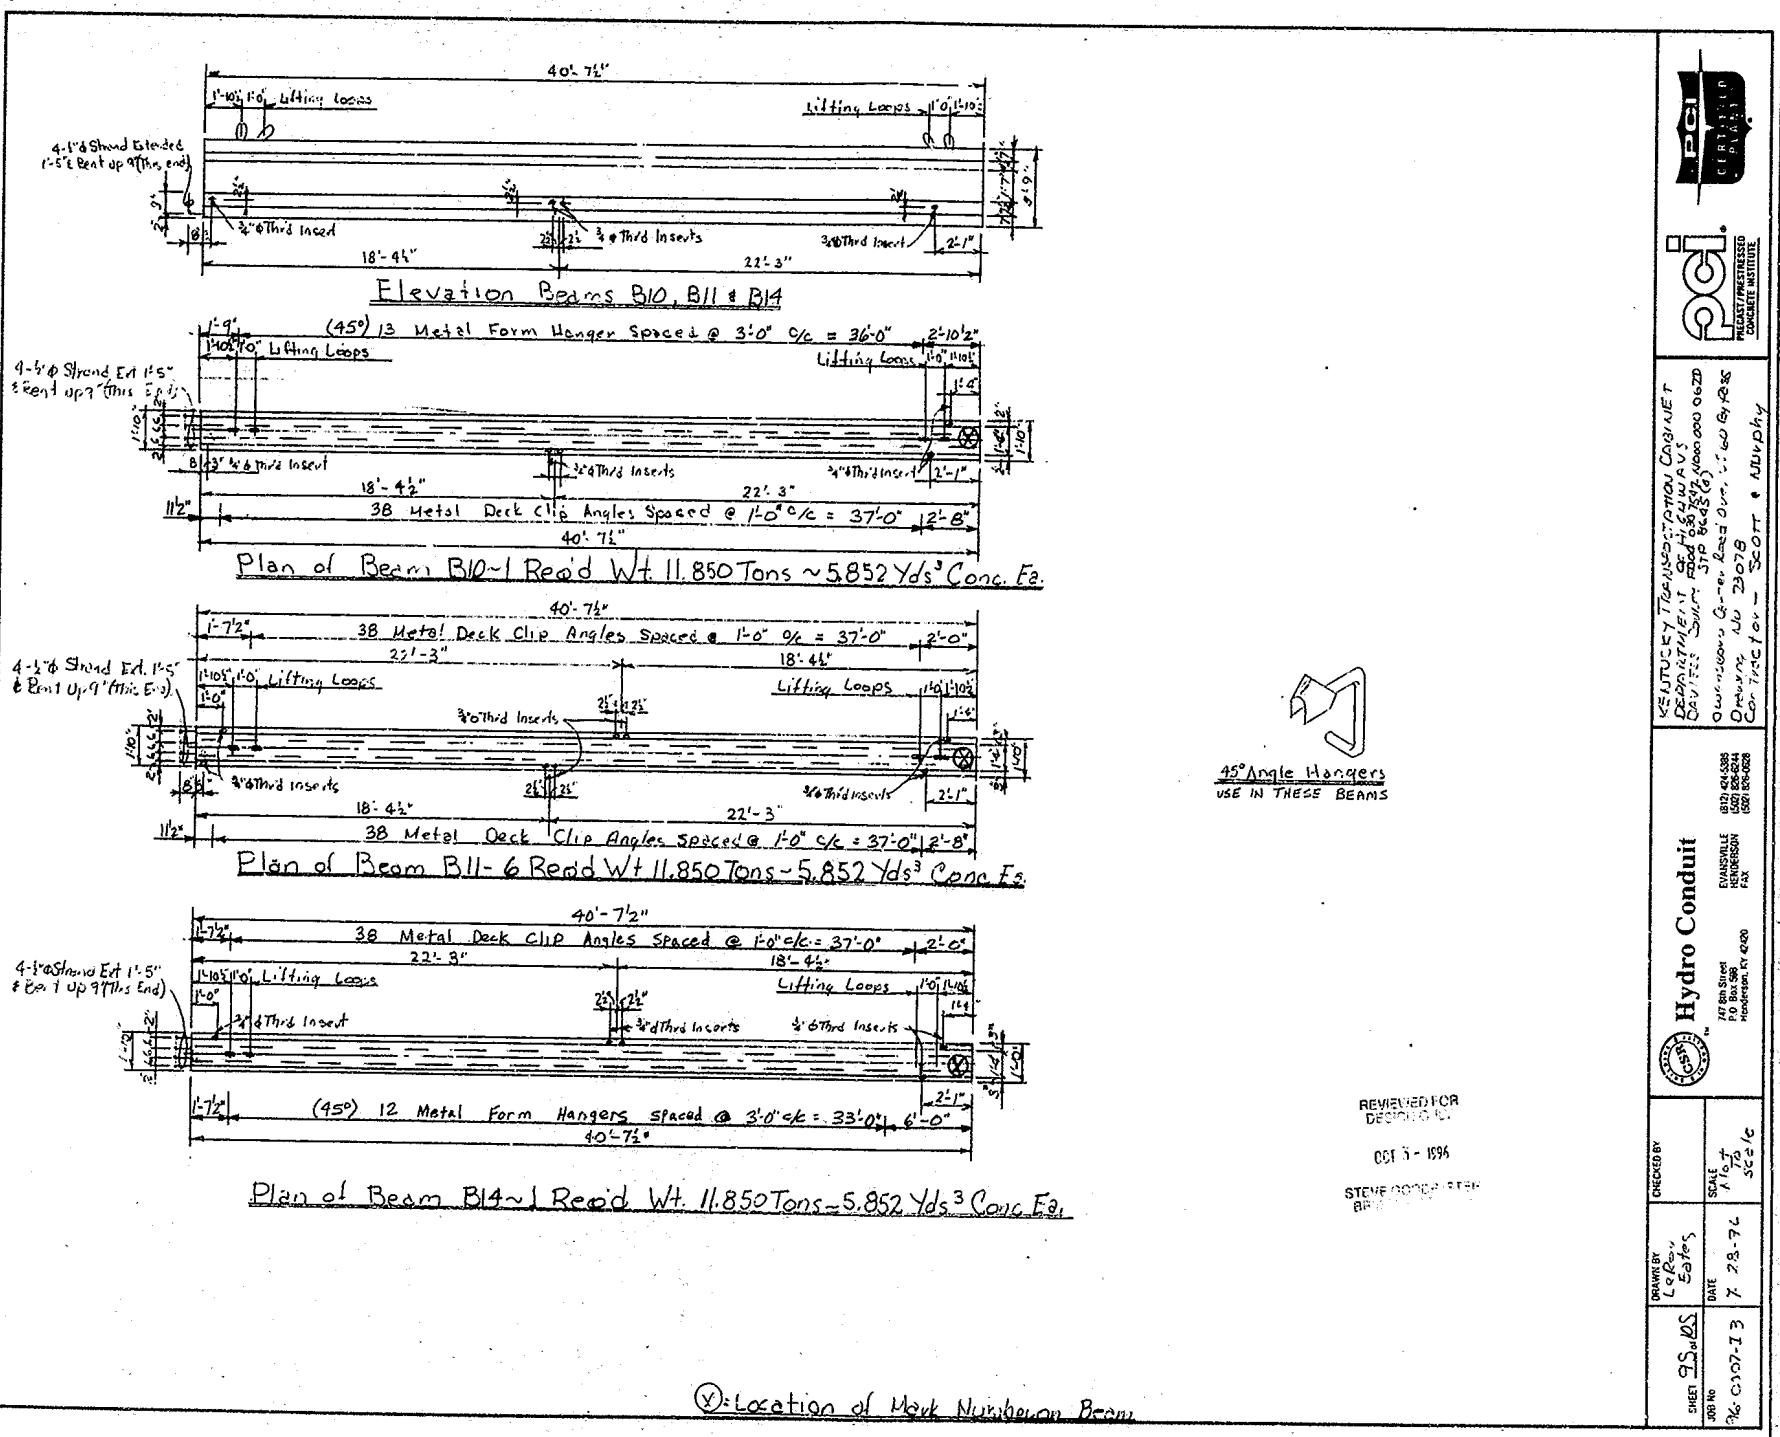 40'-7½"
1'-10½" 1'-0" Lifting Loops
Lifting Loops 1'-0" 1'-10½"
4-½"φ Strand Extended
1'-5" & Bent up 9" (This end)
2'-9"
¾"φ Thrd Insert
¾ φ Thrd Inserts
¾φ Thrd Insert
2½" 2½"
2'-1"
18'-4½"
22'-3"
Elevation Beams B10, B11 & B14
1'-9"
(45°) 13 Metal Form Hanger Spaced @ 3'-0" c/c = 36'-0"
2'-10½"
1'-10½" 1'-0" Lifting Loops
Lifting Loops 1'-0" 1'-10½"
4-½"φ Strand Ext 1'-5"
& Bent up 9" (This End)
1'-4"
1'-10"
2" 6 6 6 2"
1'-10"
8" 3" ¾"φ Thrd Insert
¾"φ Thrd Inserts
¾"φ Thrd Insert
2'-1"
18'-4½"
22'-3"
11½"
38 Metal Deck Clip Angles Spaced @ 1'-0" c/c = 37'-0"
2'-8"
40'-7½"
Plan of Beam B10~1 Req'd Wt. 11.850 Tons ~ 5.852 Yds³ Conc. Ea.
40'-7½"
1'-7½"
38 Metal Deck Clip Angles Spaced @ 1'-0" c/c = 37'-0"
2'-0"
22'-3"
18'-4½"
4-½"φ Strand Ext. 1'-5"
& Bent Up 9" (This End)
1'-10½" 1'-0" Lifting Loops
Lifting Loops 1'-0" 1'-10½"
1'-0"
2½" 2½"
¾"φ Thrd Inserts
1'-10"
2" 6 6 6 2"
¾"φ Thrd Inserts
2½" 2½"
¾φ Thrd Inserts
2'-1"
18'-4½"
22'-3"
11½"
38 Metal Deck Clip Angles Spaced @ 1'-0" c/c = 37'-0"
2'-8"
Plan of Beam B11-6 Req'd Wt 11.850 Tons ~ 5.852 Yds³ Conc Ea.
45° Angle Hangers
USE IN THESE BEAMS
40'-7½"
1'-7½"
38 Metal Deck Clip Angles Spaced @ 1'-0" c/c = 37'-0"
2'-0"
22'-3"
18'-4½"
4-½"φ Strand Ext 1'-5"
& Bent up 9" (This End)
1'-10½" 1'-0" Lifting Loops
Lifting Loops 1'-0" 1'-10½"
1'-0"
2½" 2½"
¾"φ Thrd Insert
¾"φ Thrd Inserts
¾"φ Thrd Inserts
1'-10"
2'-1"
1'-7½"
(45°) 12 Metal Form Hangers spaced @ 3'-0" c/c = 33'-0"
6'-0"
40'-7½"
Plan of Beam B14~1 Req'd Wt. 11.850 Tons ~ 5.852 Yds³ Conc Ea.
REVIEWED FOR
OCT 3 - 1996
STEVE
Ⓧ = Location of Mark Number on Beam
PCI
CERTIFIED
PLANT
pci
PRECAST/PRESTRESSED
CONCRETE INSTITUTE
KENTUCKY TRANSPORTATION CABINET
DEPARTMENT OF HIGHWAYS
DAVIESS County
Drawing No 23078
Contractor — SCOTT & Murphy
CSR
Hydro Conduit
747 8th Street
P.O. Box 588
Henderson, KY 42420
EVANSVILLE (812) 424-5385
HENDERSON (502) 826-6244
FAX (502) 826-0628
CHECKED BY
SCALE
Not
To
Scale
DRAWN BY
LeRoy
Estes
DATE
SHEET 9S of 10S
JOB No